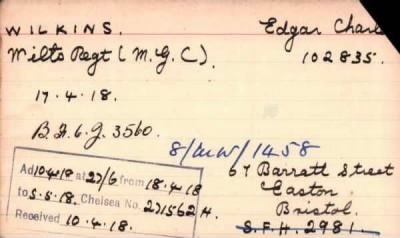 WILKINS. Edgar Charl
Wilts Regt (M.G.C). 102835.
17.4.18.
B.F.6.G. 3560.
8/MW/1458
Ad 10418 at 27/6 from 18.4.18
to 5.5.18. Chelsea No. 271562 H.
Received 10.4.18.
67 Barratt Street
Easton
Bristol.
S.F.H. 2981.